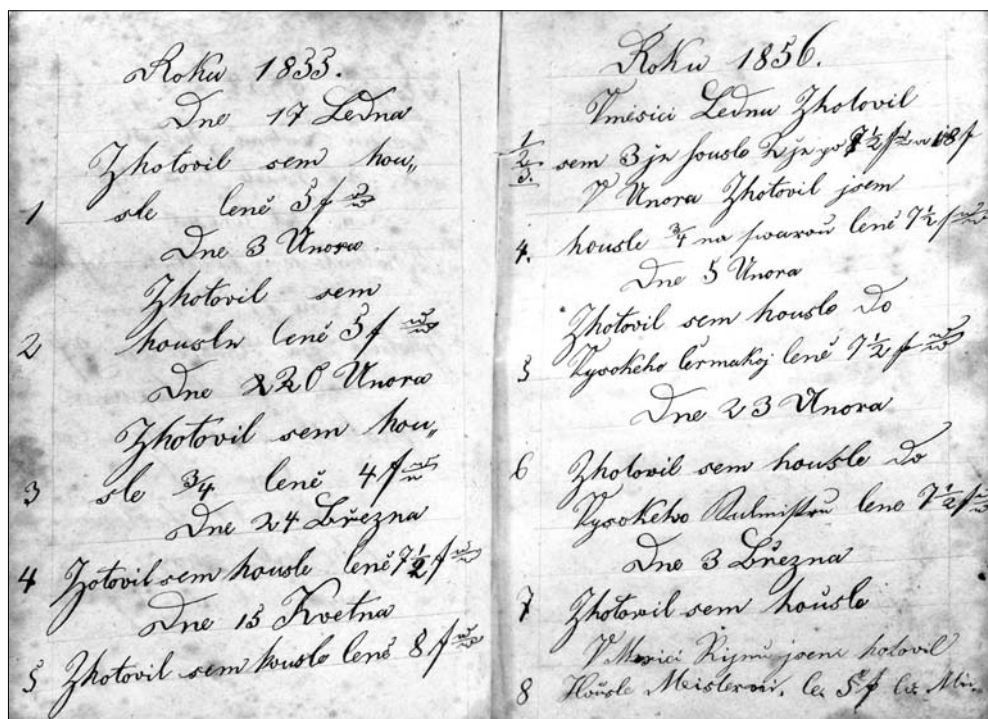 Roku 1855.
Dne 17 Ledna
Zhotovil sem hou„
1 sle leně 5 f
Dne 3 Unora
Zhotovil sem
2 housle leně 5 f
Dne 20 Unora
Zhotovil sem hou„
3 sle 3/4 leně 4 f
Dne 24 Března
4 Zotovil sem housle leně 7 1/2 f
Dne 15 Května
5 Zhotovil sem housle leně 8 f
Roku 1856.
V měsici Lednu Zhotovil
1 2 3. sem 3 housle 2 po 7 1/2 f a 18 f
V Unora Zhotovil jsem
4. housle 3/4 na leně 7 1/2 f
Dne 5 Unora
Zhotovil sem housle do
5 Vysokeho Čermakoj leně 7 1/2 f
Dne 23 Unora
6 Zhotovil sem housle do
Vysokeho leně 7 1/2 f
Dne 3 Března
7 Zhotovil sem housle
V Měsici Rijnu jsem hotovil
8 Housle Meisterovi. 5 f